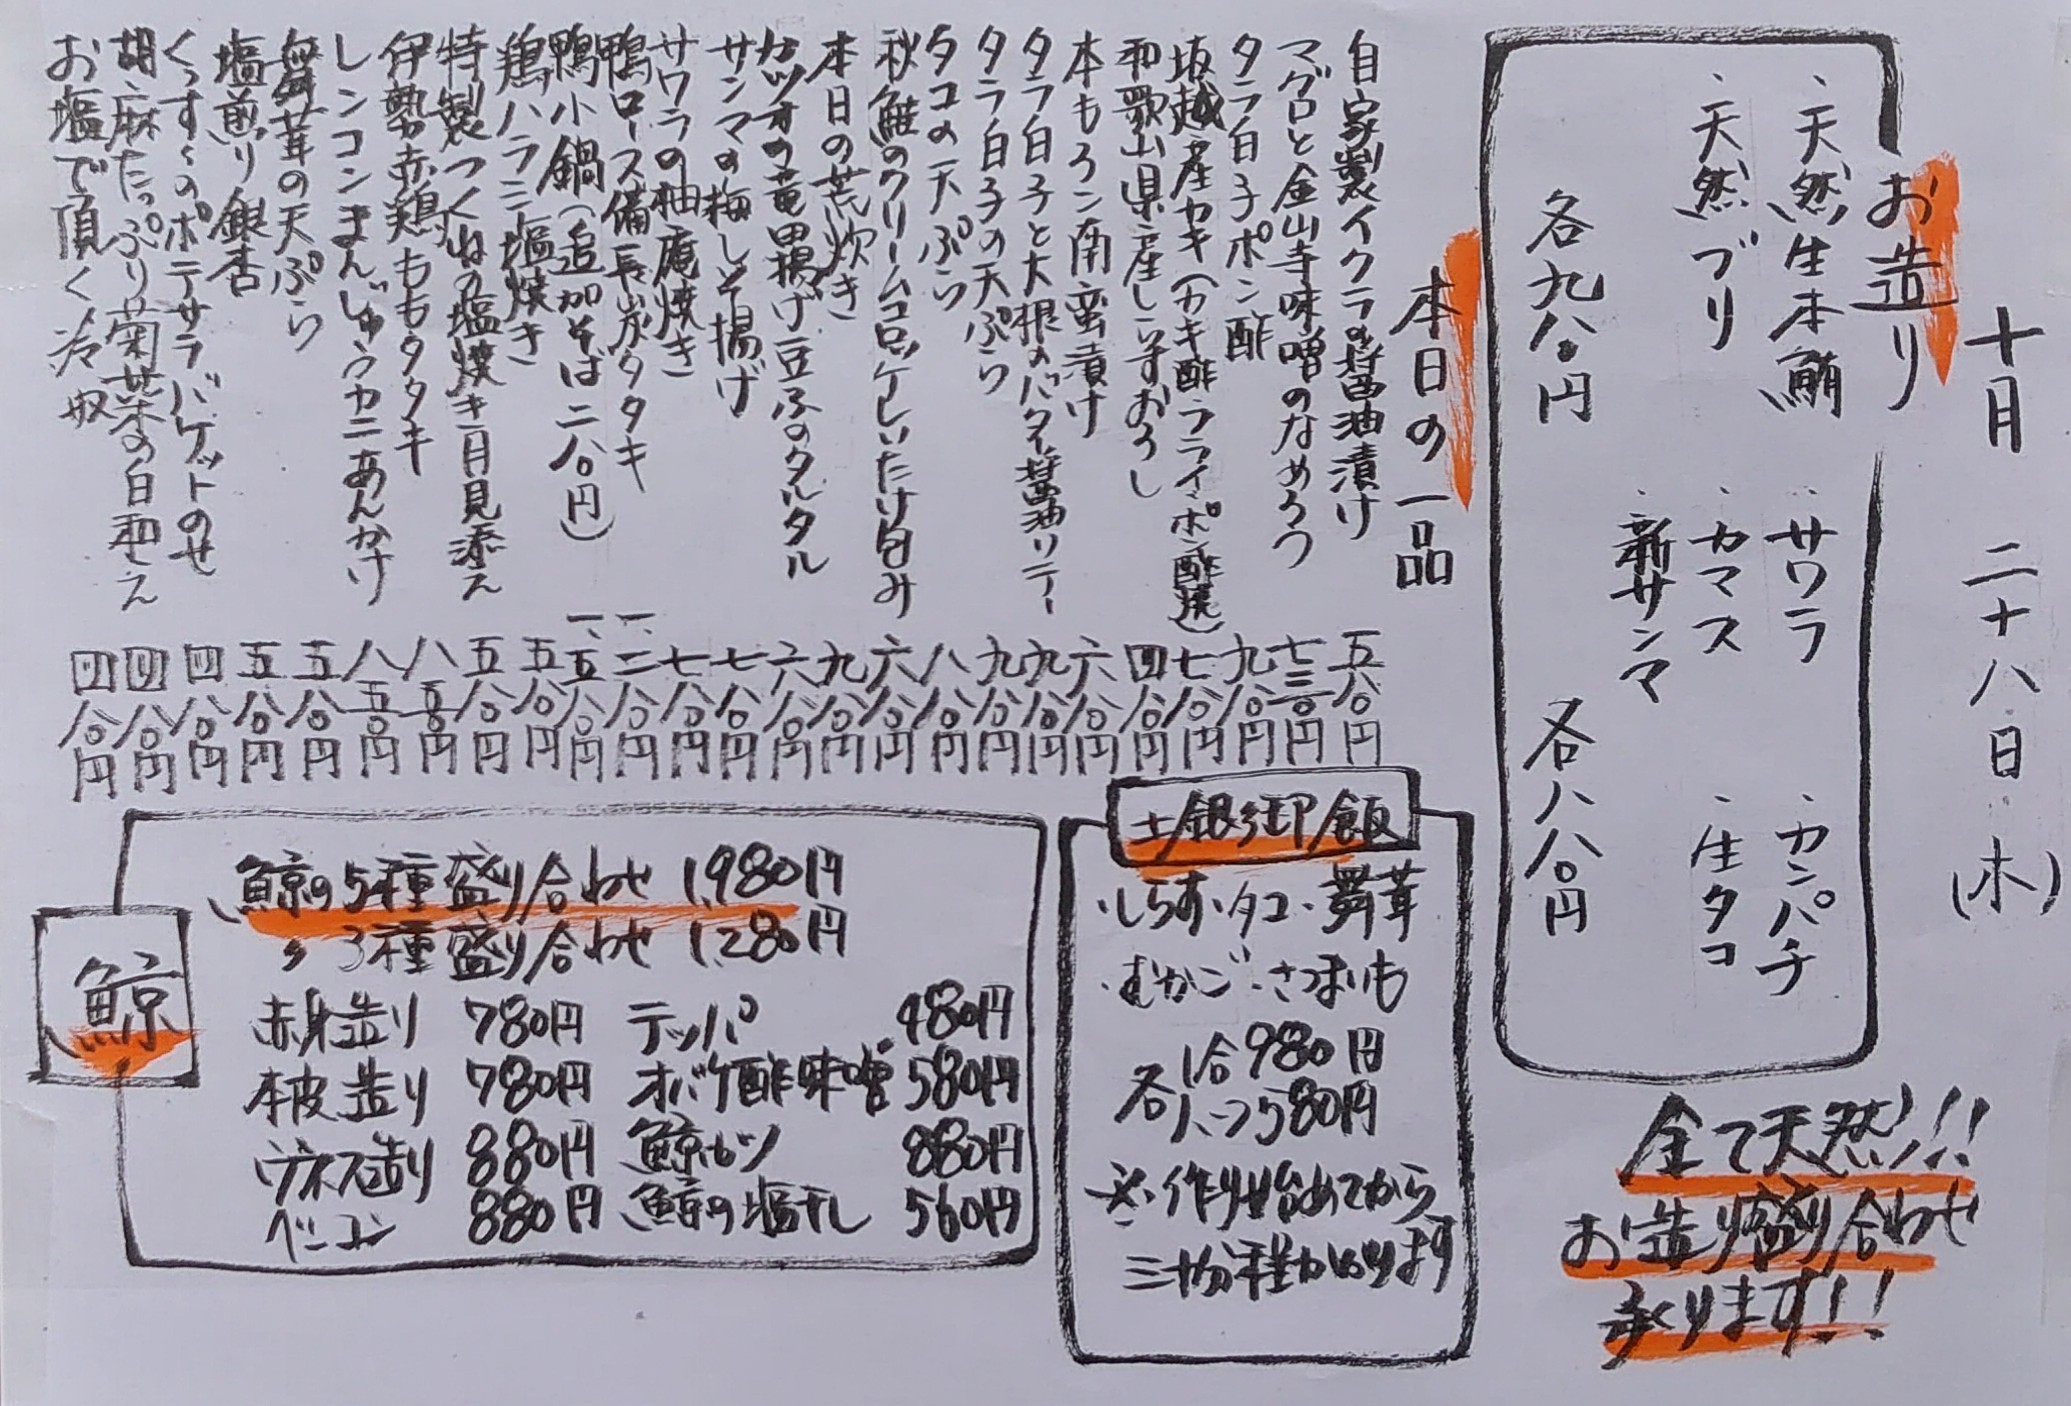 十月二十八日(木)
お造り
・天然生本鮪
・天然ブリ
各九八〇円
・サワラ
・カマス
・新サンマ
・カンパチ
・生タコ
各八八〇円
全て天然!!
お造り盛り合わせ
承ります!!
本日の一品
自家製イクラの醤油漬け 五八〇円
マグロと金山寺味噌のなめろう 七三〇円
タラ白子ポン酢 九八〇円
坂越産カキ(カキ酢・フライ・ポン酢焼) 七八〇円
和歌山県産しらすおろし 四八〇円
本もろこ南蛮漬け 六八〇円
タラ白子と大根のバター醤油ソテー 九八〇円
タラ白子の天ぷら 九八〇円
タコの天ぷら 八八〇円
秋鮭のクリームコロッケしいたけ包み 六八〇円
本日の荒炊き 九八〇円
カツオの竜田揚げ豆ふのタルタル 六八〇円
サンマの梅しそ揚げ 七八〇円
サワラの柚庵焼き 七八〇円
鴨ロース備長炭タタキ 一、二八〇円
鴨小鍋(追加そば二八〇円) 一、五八〇円
鶏ハラミ塩焼き 五八〇円
特製つくねの塩焼き月見添え 五八〇円
伊勢赤鶏ももタタキ 八八〇円
レンコンまんじゅうカニあんかけ 八五〇円
舞茸の天ぷら 五八〇円
塩煎り銀杏 五八〇円
くっすぐのポテサラバゲットのせ 四八〇円
胡麻たっぷり菊菜の白和え 四八〇円
お塩で頂く冷奴 四八〇円
土鍋御飯
・しらす・タコ・舞茸
・むかご・さつまいも
各 1合980円
ハーフ580円
※作り始めてから
三十分程かかります
鯨
鯨の5種盛り合わせ 1,980円
〃 3種盛り合わせ 1,280円
赤身造り 780円 テッパ 480円
本皮造り 780円 オバケ酢味噌 580円
ウネス造り 880円 鯨カツ 880円
ベーコン 880円 鯨の塩干し 560円